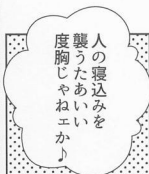 人の寝込みを
襲うたあいい
度胸じゃねェか♪